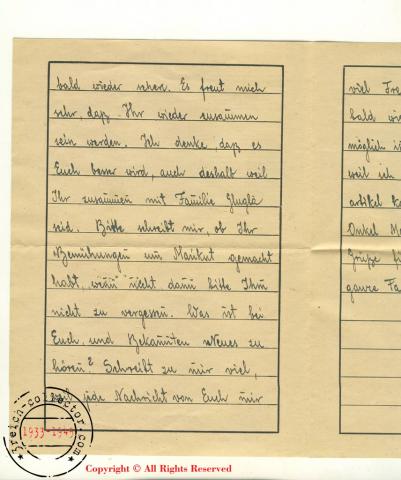 bald wieder sehen. Es freut mich
sehr, daß Ihr wieder zusammen
sein werden. Ich denke, daß es
Euch besser wird, auch deshalb weil
Ihr zusammen mit Familie
seid. Bitte schreibt mir, ob Ihr
Bemühungen um gemacht
habt, wenn nicht dann bitte Ihm
nicht zu vergessen. Was ist bei
Euch, und Bekannten Neues zu
hören? Schreibt zu mir viel,
jede Nachricht von Euch mir
viel
bald
möglich
weil ich
artikel
Onkel
Grüße
ganze
3reich-collector.com
1933-1945
Copyright © All Rights Reserved